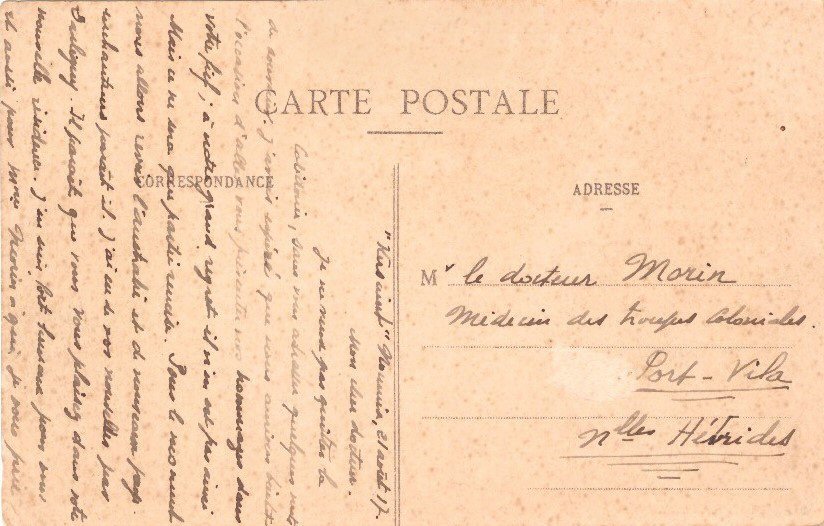 CARTE POSTALE
CORRESPONDANCE
ADRESSE
"Kersaint" Nouméa, 21 août 17.
Mon cher docteur.
Je ne veux pas quitter la
Calédonie, sans vous adresser quelques mots
de souvenir. J'avais espéré que nous aurions
l'occasion d'aller vous présenter nos hommages dans
votre fief; à notre grand regret il n'en est pas ainsi
Mais ce ne sera que partie remise. Pour le moment
nous allons revoir l'Australie et de nouveaux pays
enchanteurs paraît-il. J'ai eu de vos nouvelles par
Il paraît que vous vous plaisez dans votre
nouvelle résidence. J'en suis fort heureux pour vous
et aussi pour Mme Morin à qui je vous prie
Mr le docteur Morin
Médecin des troupes Coloniales.
Port-Vila
Nlles Hébrides